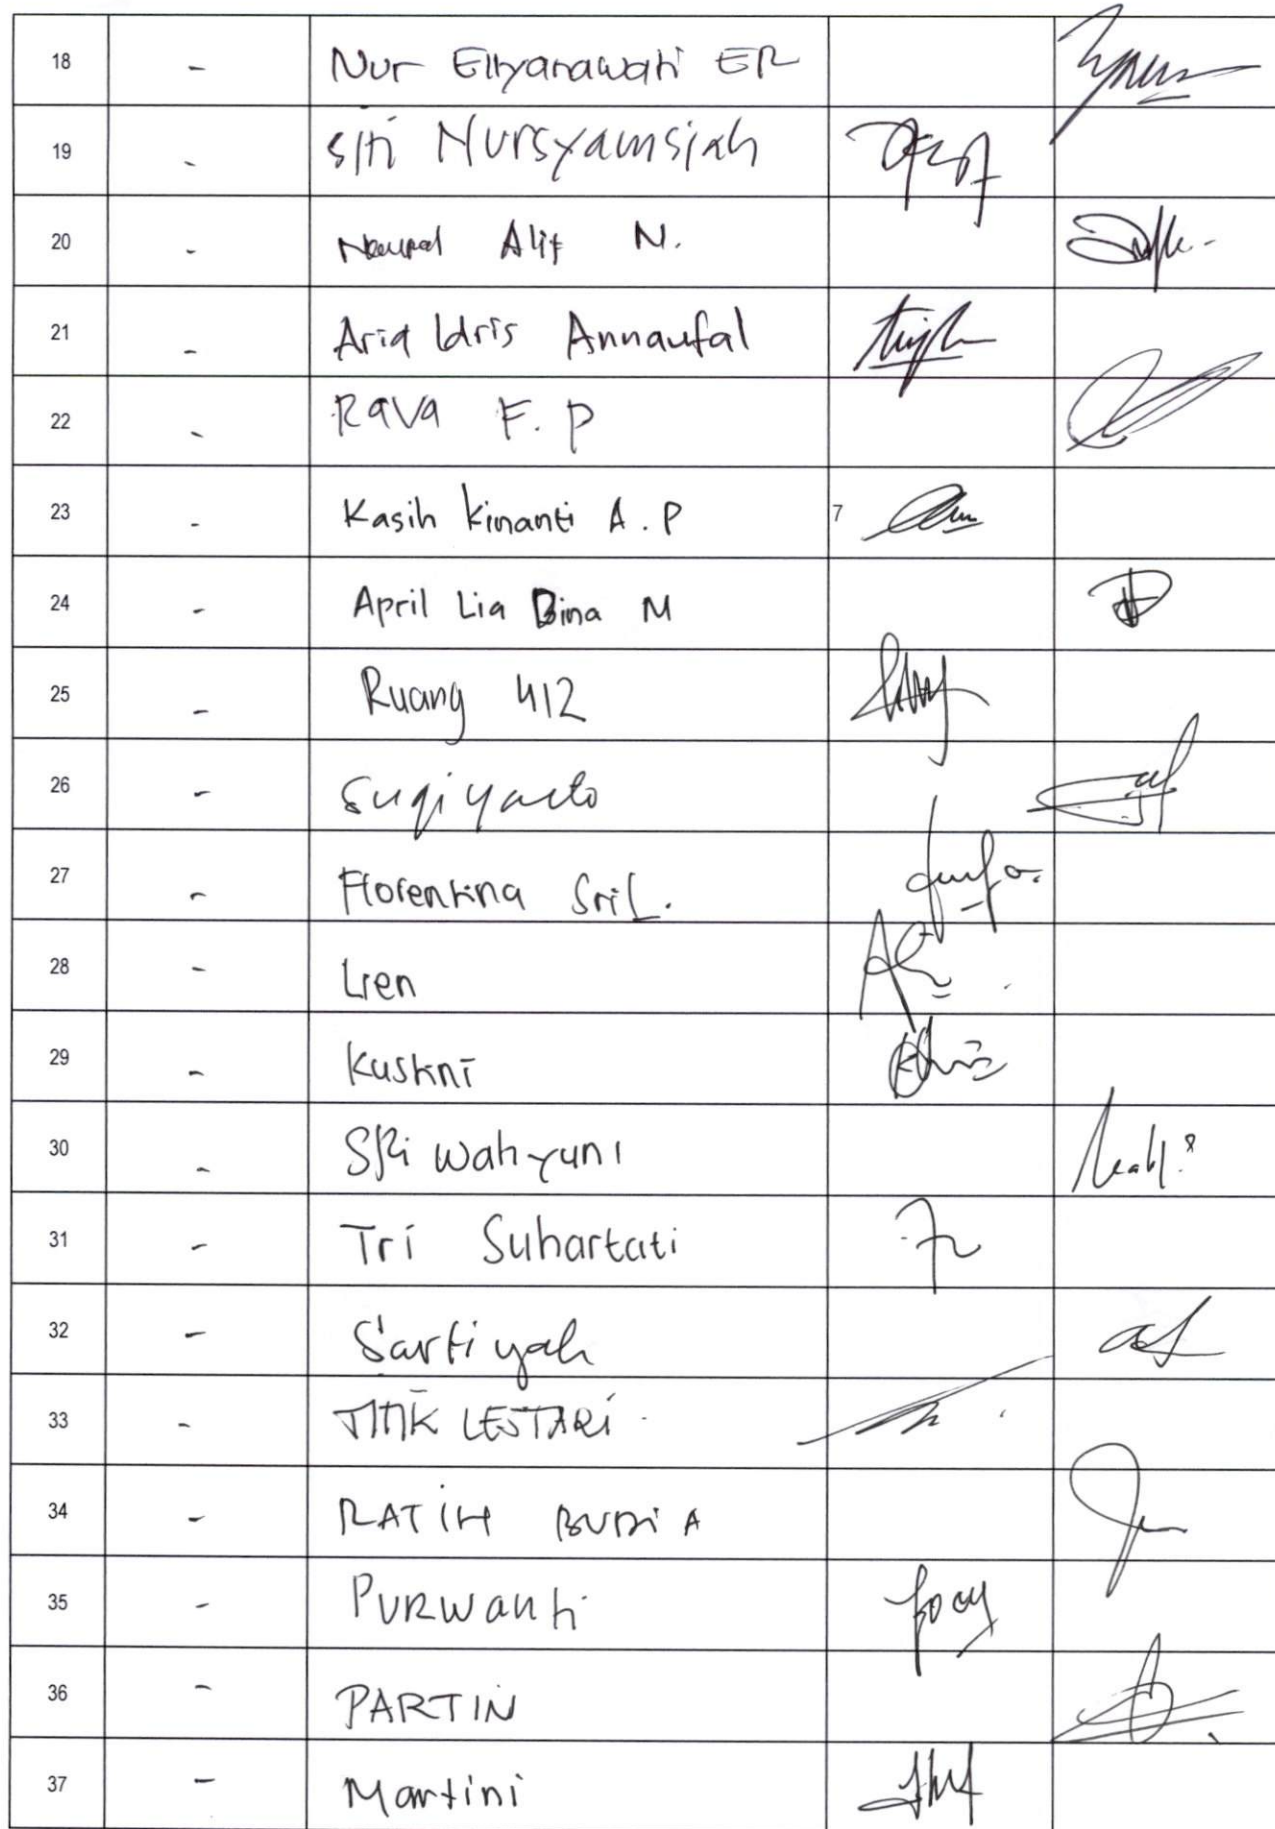 18 - Nur Ellyanawati ER
19 - Siti Nursyamsiah
20 - Naupal Alif N.
21 - Aria Idris Annaufal
22 - Rava F. P
23 - Kasih Kinanti A. P 7
24 - April Lia Bina M
25 - Ruang 412
26 - Sugiyarto
27 - Florentina Sri L.
28 - Lien
29 - Kustini
30 - SRi Wahyuni
31 - Tri Suhartati
32 - Sartiyah
33 - TITIK LESTARI
34 - RATIH BUDI A
35 - PURWANTi
36 - PARTINI
37 - Martini